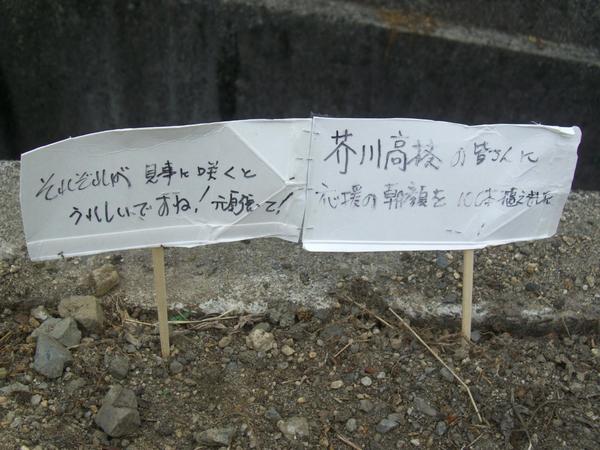 それぞれが 見事に咲くと
うれしいですね! 頑張って!
芥川高校の皆さんに
応援の朝顔を 本植えました